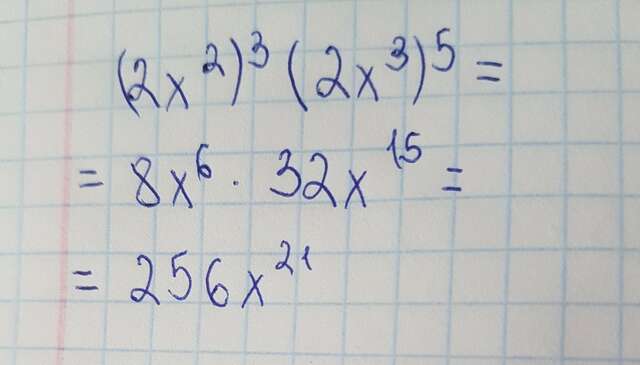 (2x²)³ (2x³)⁵ =
= 8x⁶ · 32x¹⁵ =
= 256x²¹